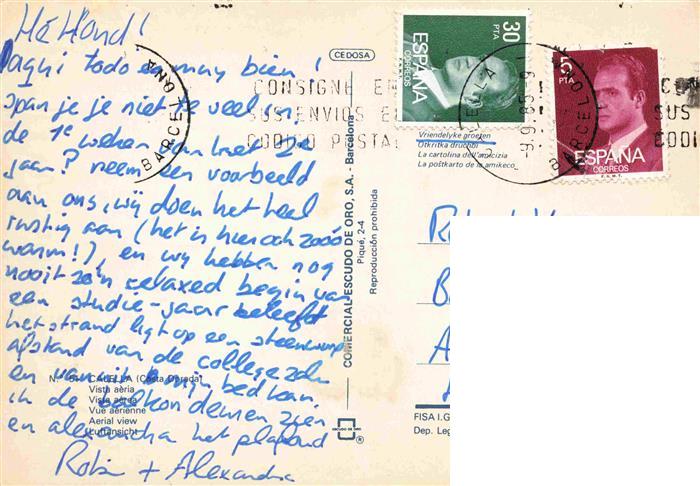 Hé Hond!
Aqui todo es muy bien!
span je je niet te veel in,
de 1e weken van het 2e
jaar? neem een voorbeeld
aan ons, wij doen het heel
rustig aan (het is hier och zóóó
warm!), en wij hebben nog
nooit zo'n relaxed begin van
een studie-jaar beleefd
het strand ligt op een steenworp
afstand van de collegezaln
en vanuit mijn bed kan
ik de balkondeuren zien
en alexandra het plafond
Robin + Alexandra
N.º 64 CALELLA (Costa Dorada)
Vista aérea
Vista aèria
Vue aérienne
Aerial view
Luftansicht
CEDOSA
COMERCIAL ESCUDO DE ORO, S.A. - Barcelona
Piqué, 2-4
Reproducción prohibida
ESCUDO DE ORO
®
BARCELONA
CONSIGNE E
SUS ENVIOS E
CODIGO POSTAL
30
PTA
ESPAÑA
CORREOS
5
PTA
ESPAÑA
CORREOS
F.N.M.T.
CALELLA
-9.9.85-9
BARCELO
C
SUS
CODI
Vriendelyke groeten
Otkritka druchbi
La cartolina dell'amicizia
La poŝtkarto de la amikeco
FISA I.G
Dep. Leg